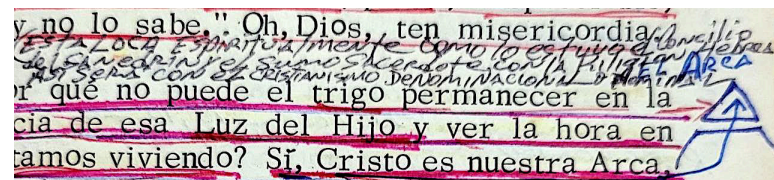 y no lo sabe." Oh, Dios, ten misericordia.
ESTA LOCA ESPIRITUALMENTE COMO lo estuvo el Concilio
del SANEDRIN y el SUMO SACERDOTE CON LA Religion Hebrea
ASI SERA CON EL CRISTIANISMO DENOMINACIONAL
ARCA
r qué no puede el trigo permanecer en la
cia de esa Luz del Hijo y ver la hora en
tamos viviendo? Sí, Cristo es nuestra Arca,